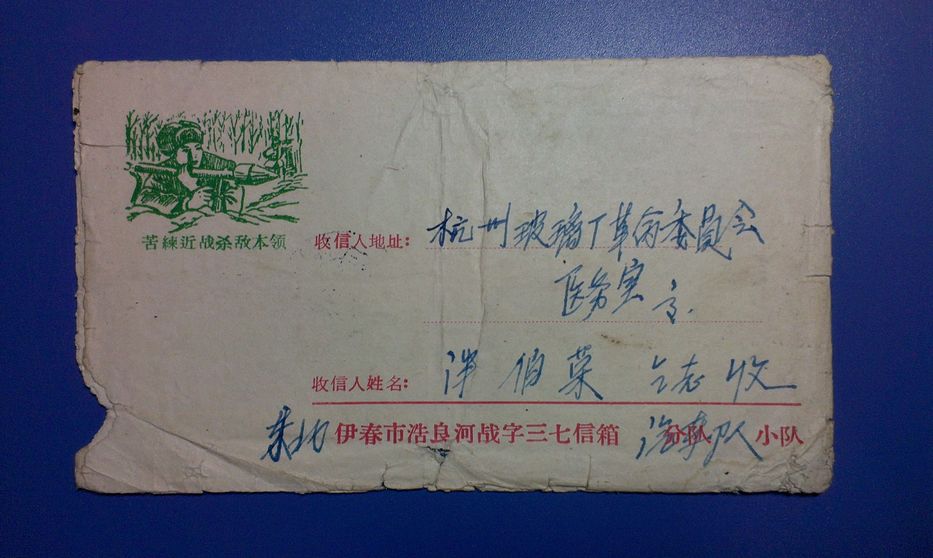 苦練近战杀敌本领
收信人地址: 杭州玻璃厂革命委员会
医务室
收信人姓名: 伯荣 同志 收
东北 伊春市浩良河战字三七信箱 分队 汽车队 小队